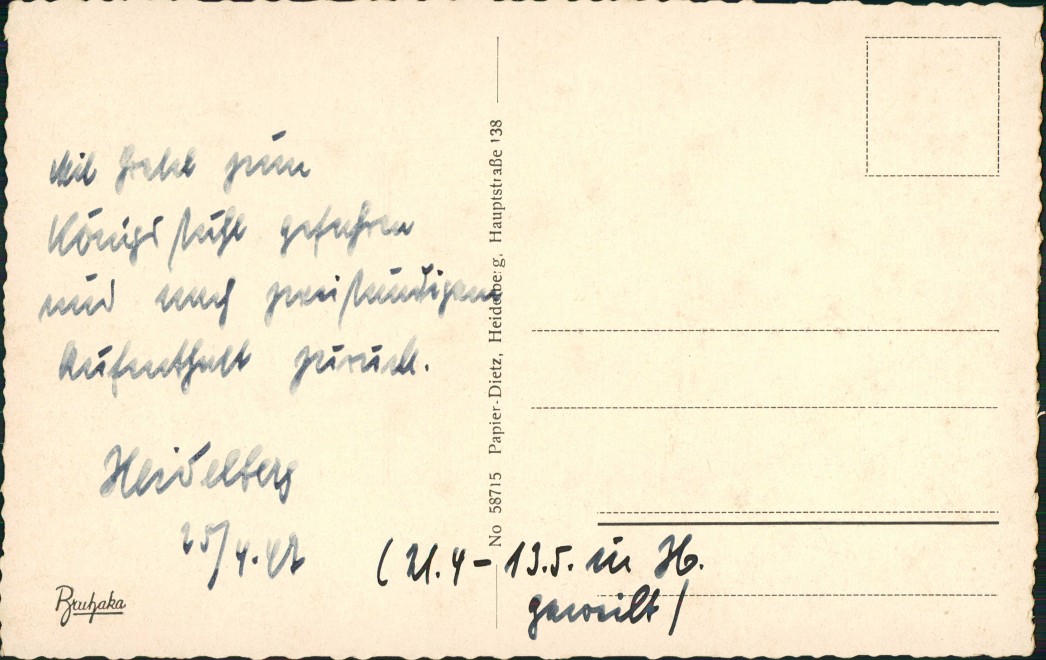 Mit Gretel zum
Königsstuhl gefahren
und nach zweistündigem
Aufenthalt zurück.
Heidelberg
25/4.42
(21.4 - 13.5. in H.
geweilt)
No 58715 Papier-Dietz, Heidelberg, Hauptstraße 138
Bruhaka